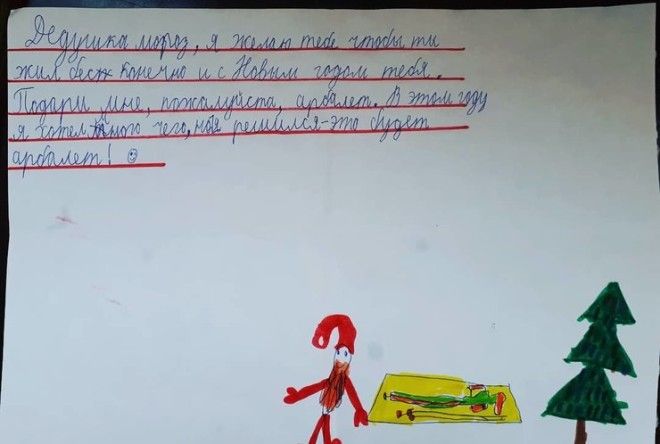 Дедушка мороз, я желаю тебе чтобы ты
жил беск конечно и с Новым годом тебя.
Подари мне, пожалуйста, арбалет. В этом году
я хотел много чего, но я решился-это будет
арбалет! ☺